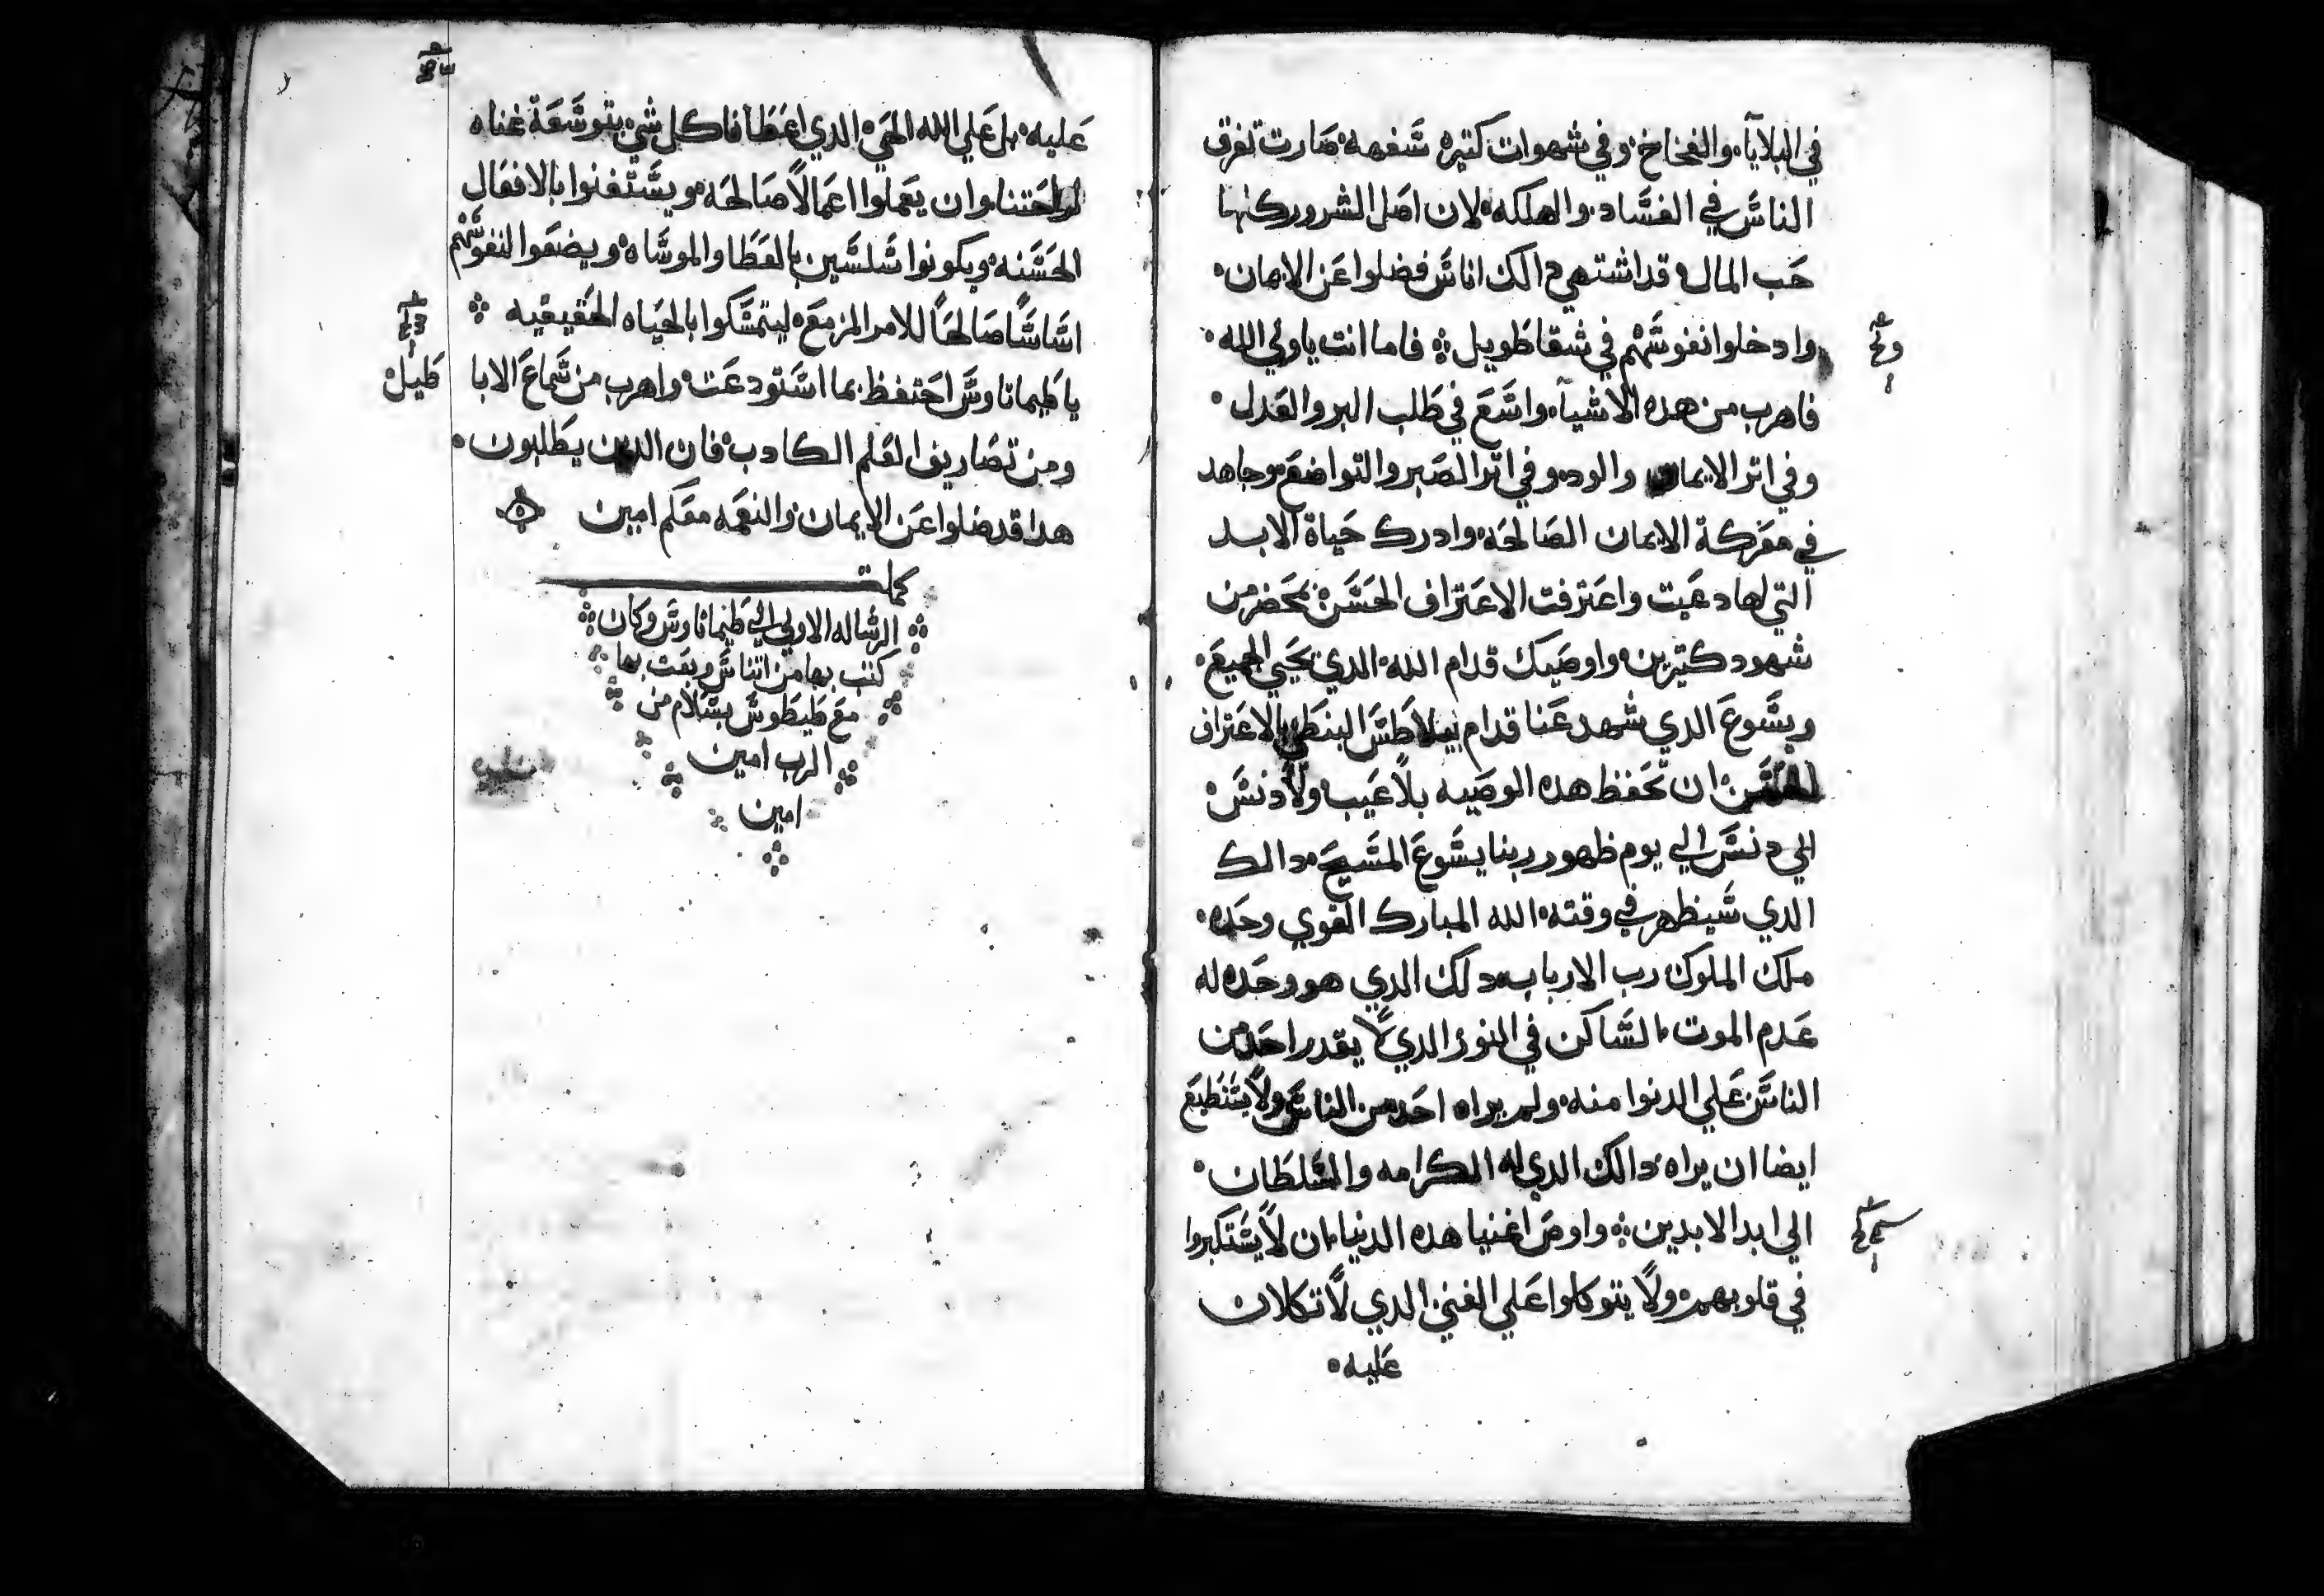 في البلايا، والفخاخ، وفي شهوات كتيره شفهه صارت تغرق
الناس في الفساد، والهلكه، لان اصل الشرور كلها
حب المال، قد اشتهي دالك اناس فضلوا عن الايمان،
وادخلوا نفوسهم في شقا طويل ܀ فاما انت ياولي الله،
فاهرب من هده الاشياء، واسع في طلب البر والعدل،
وفي اتر الايمان والود، وفي اتر الصبر والتواضع، وجاهد
في معركة الايمان الصالحه، وادرك حياة الابد
التي لها دعيت واعترفت الاعتراف الحسن، بمحضر من
شهود كتيرين، واوصيك قدام الله، الدي يحيي الجميع،
ويسوع الدي شهد عنا قدام بيلاطس البنطي بالاعتراف
الحسن، ان تحفظ هده الوصيه بلا عيب، ولا دنس،
الي دنس الي يوم ظهور ربنا يسوع المسيح، دالك
الدي سيظهر في وقته، الله المبارك القوي وحده،
ملك الملوك رب الارباب، دلك الدي هو وحده له
عدم الموت، الساكن في النور، الدي لا يقدر احد من
الناس علي الدنوا منه، ولم يراه احد من الناس ولا يستطيع
ايضا ان يراه، دالك الدي له الكرامه والسلطان،
الي ابد الابدين ܀ واوص اغنيا هده الدنيا، ان لا يستكبروا
في قلوبهم، ولا يتوكلوا علي الغني، الدي لا تكلان
عليه،
عليه، بل علي الله الحي، الدي اعطانا كل شي، بتوسعة غناه
لراحتنا، وان يعملوا اعمالا صالحه، ويستغنوا بالافعال
الحسنه، ويكونوا سلسين بالعطا والموساه، ويضعوا لنفوسهم
اساسا صالحا للامر المزمع، ليتمسكوا بالحياه الحقيقيه ܀
يا طيماتاوس احتفظ بما استودعت، واهرب من سماع الابا
طيل،
ومن تصاريف العلم الكادب، فان الدين يطلبون،
هدا قد ضلوا عن الايمان، والنعمه معكم امين
كملت
الرساله الاولي الي طيماتاوس وكان
كتب بها من اتناس وبعت بها
مع طيطوس بسلام من
الرب امين
امين